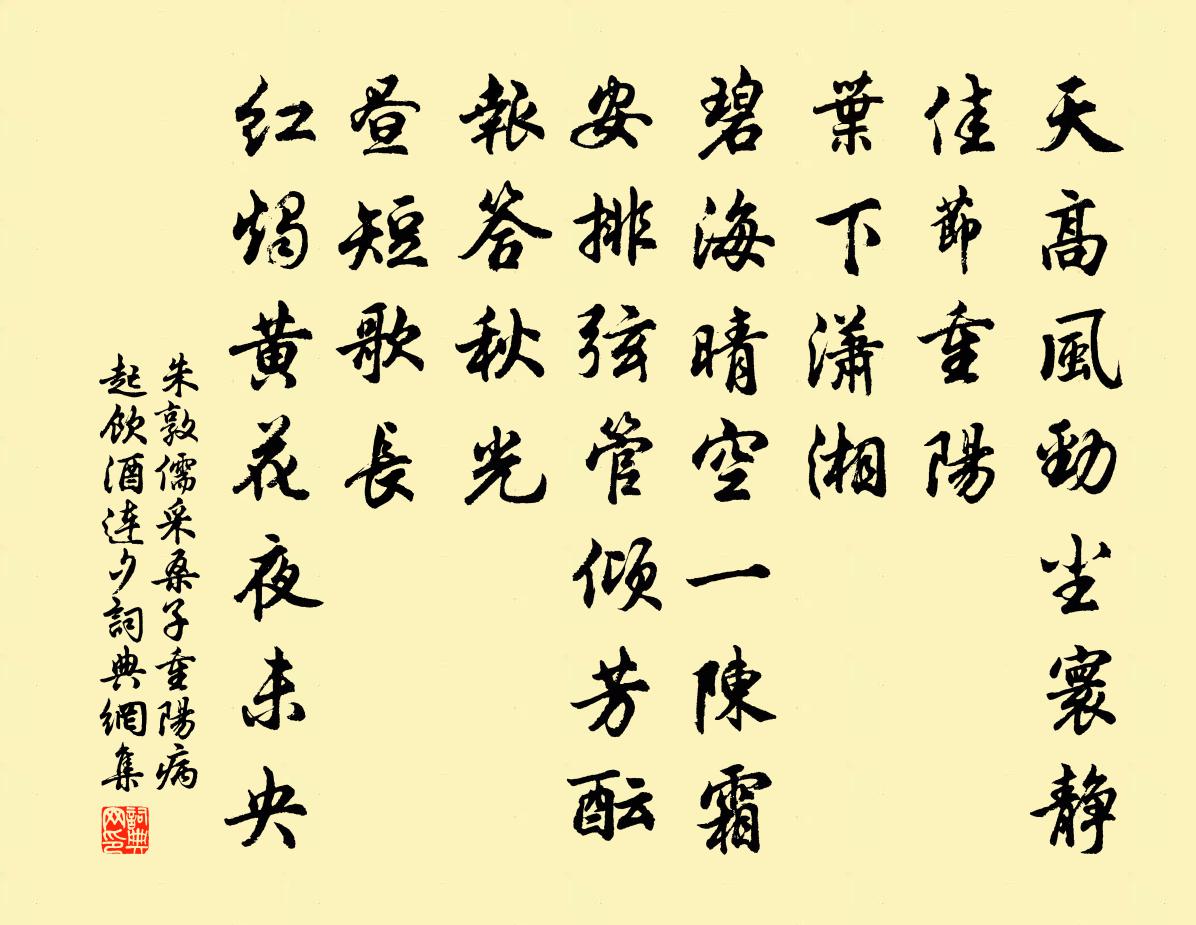 天高風勁坐寰静
佳節重陽
葉下瀟湘
碧海晴空一陳霜
安排弦管傾芳酝
報答秋光
昼短歌長
红燭黄花夜未央
朱敦儒采桑子重陽病
起飲酒連夕詞典網集
詞典
网印